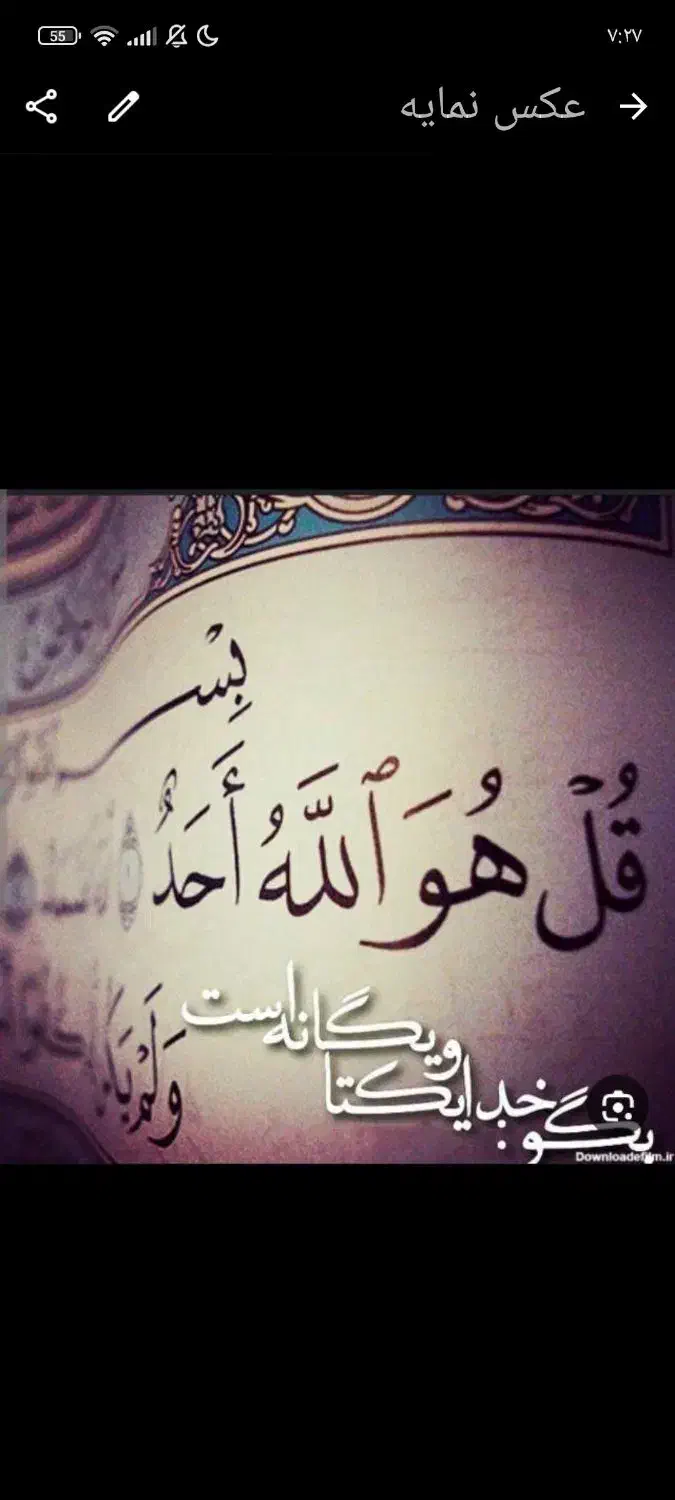 55
۷:۲۷
عکس نمایه
بِسْـ
قُلْ هُوَ ٱللَّهُ أَحَدٌ
وَلَمْ
بگو: خدا یکتا
و یگانه است
Downloadefilm.ir